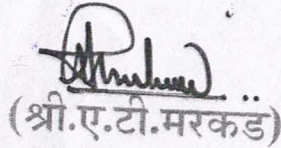 (श्री.ए.टी.मरकड)